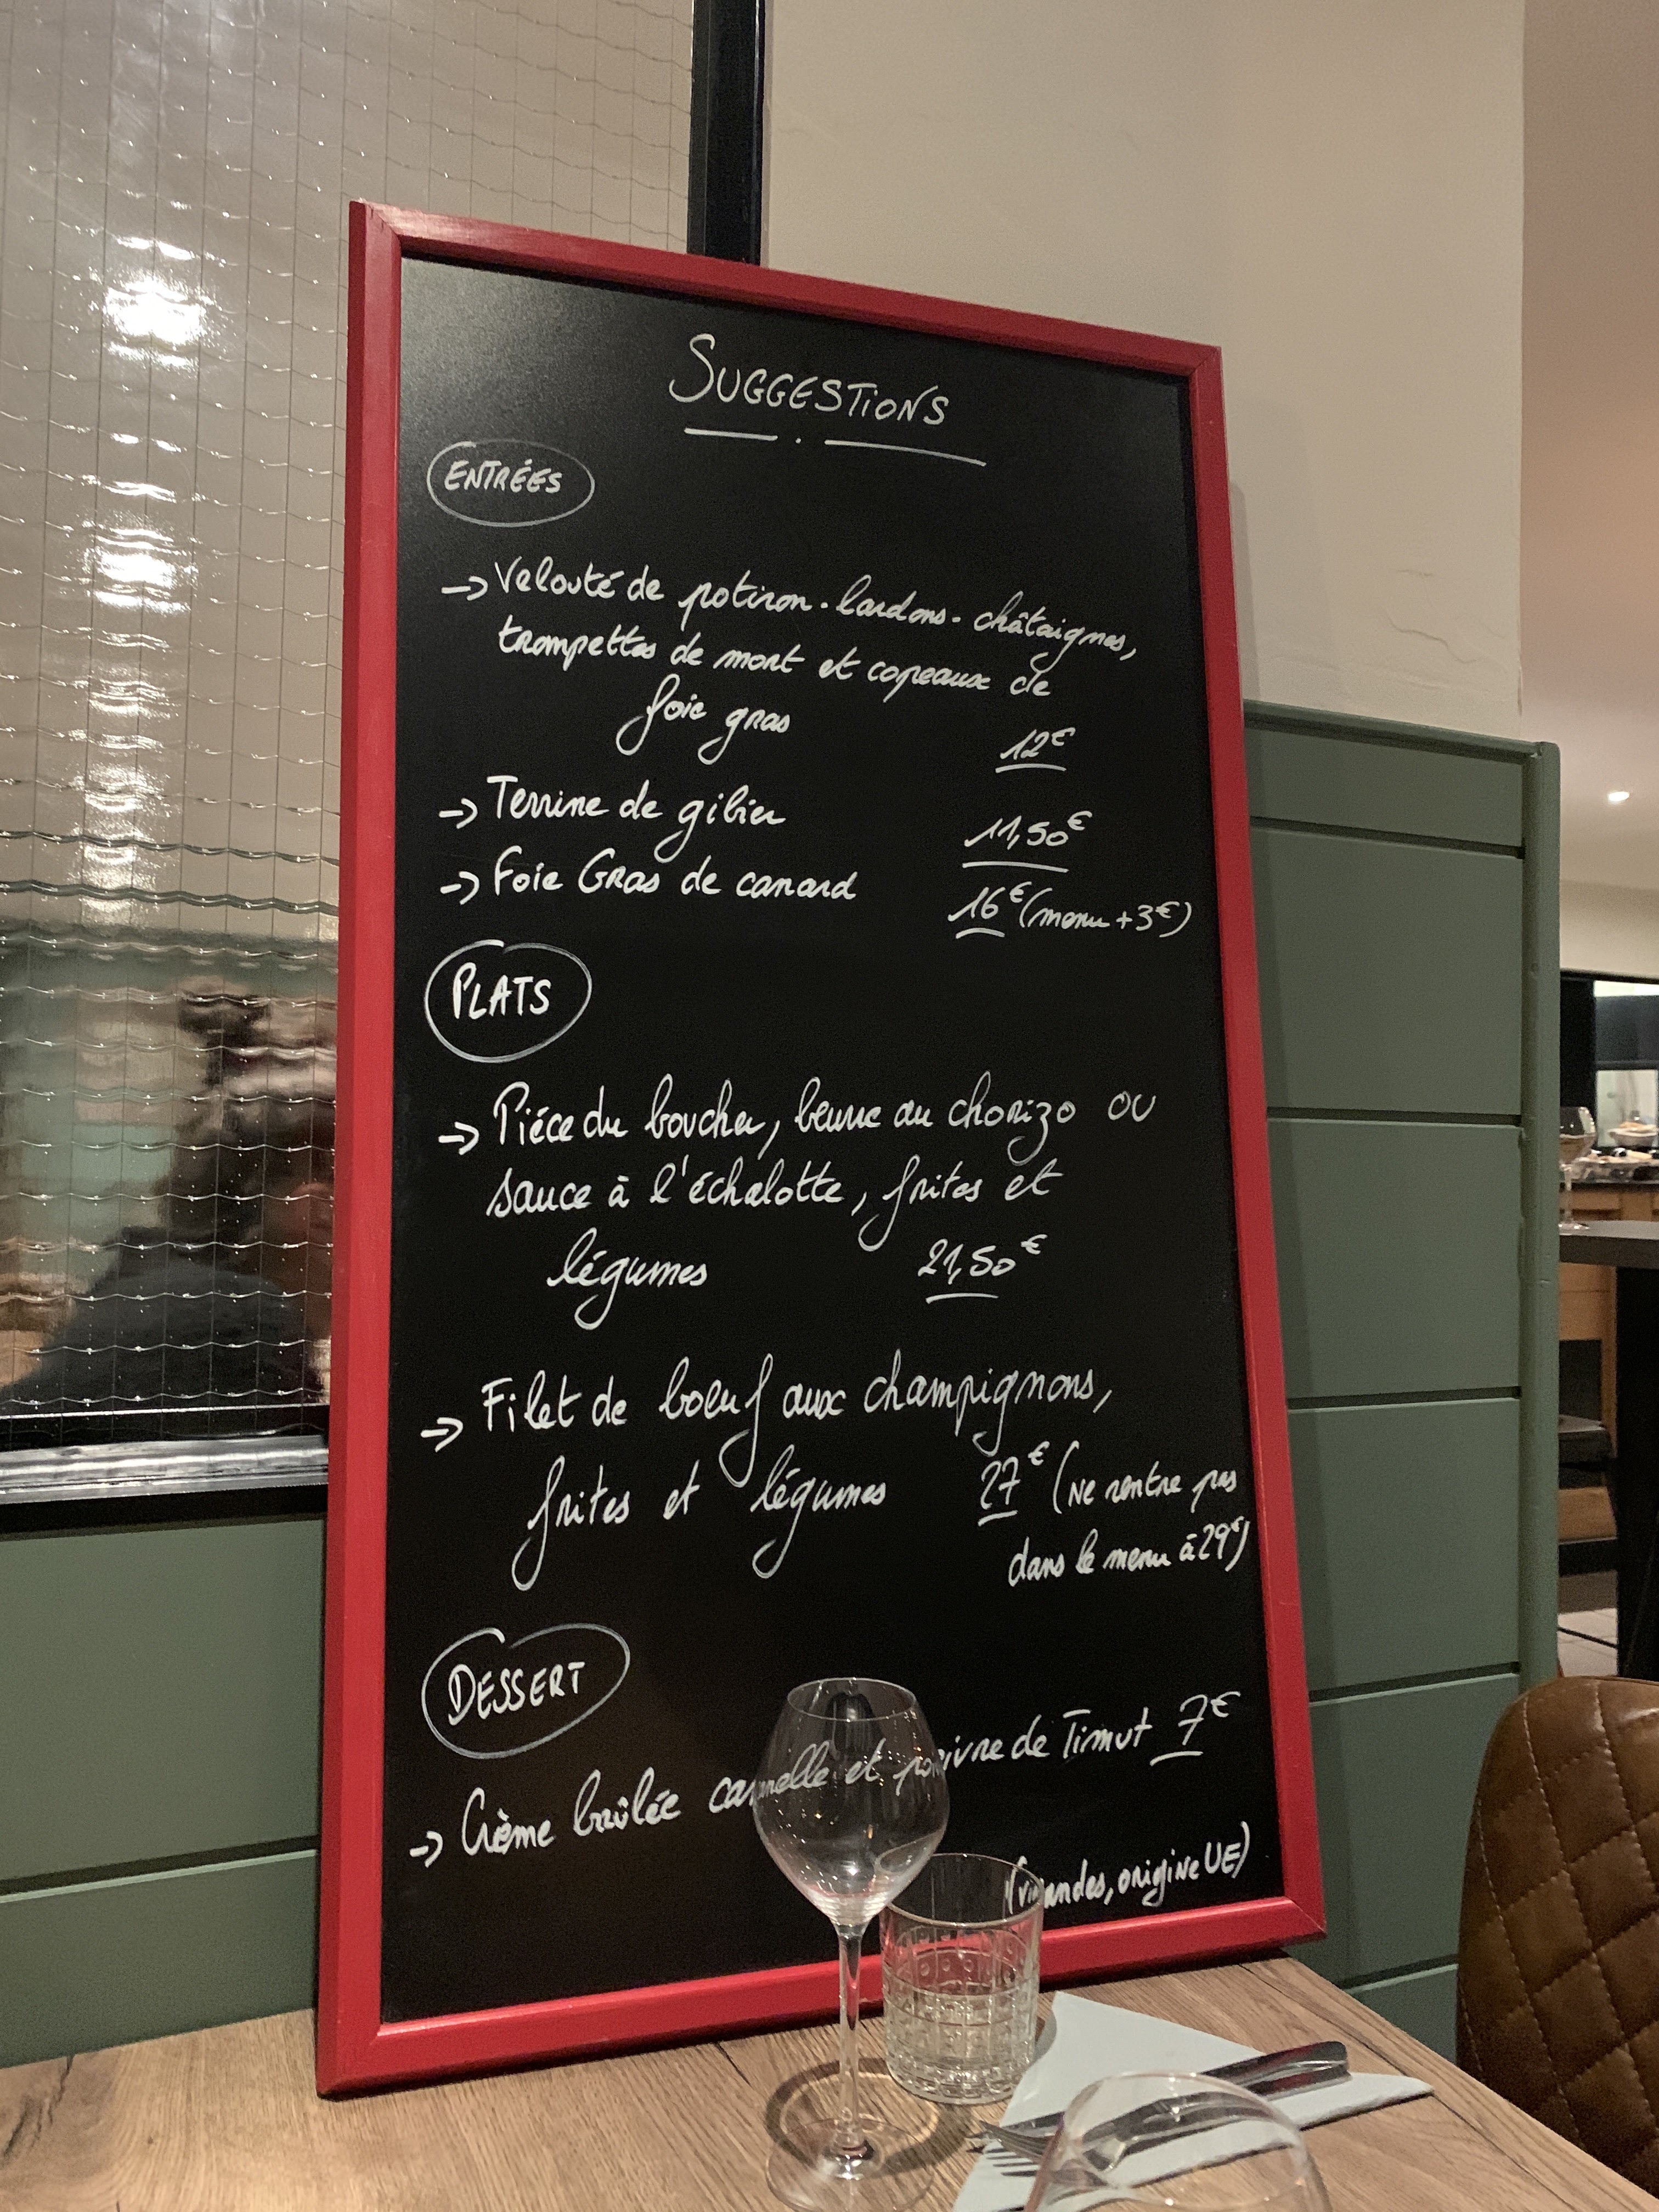 SUGGESTIONS
ENTRÉES
→ Velouté de potiron - lardons - châtaignes,
trompettes de mort et copeaux de
foie gras 12€
→ Terrine de gibier 11,50€
→ Foie Gras de canard 16€ (menu +3€)
PLATS
→ Piéce du boucher, beurre au chorizo ou
sauce à l'échalotte, frites et
légumes 21,50€
→ Filet de boeuf aux champignons,
frites et légumes 27€ (Ne rentre pas
dans le menu à 29€)
DESSERT
→ Crème brûlée cannelle et poivre de Timut 7€
(viandes, origine UE)